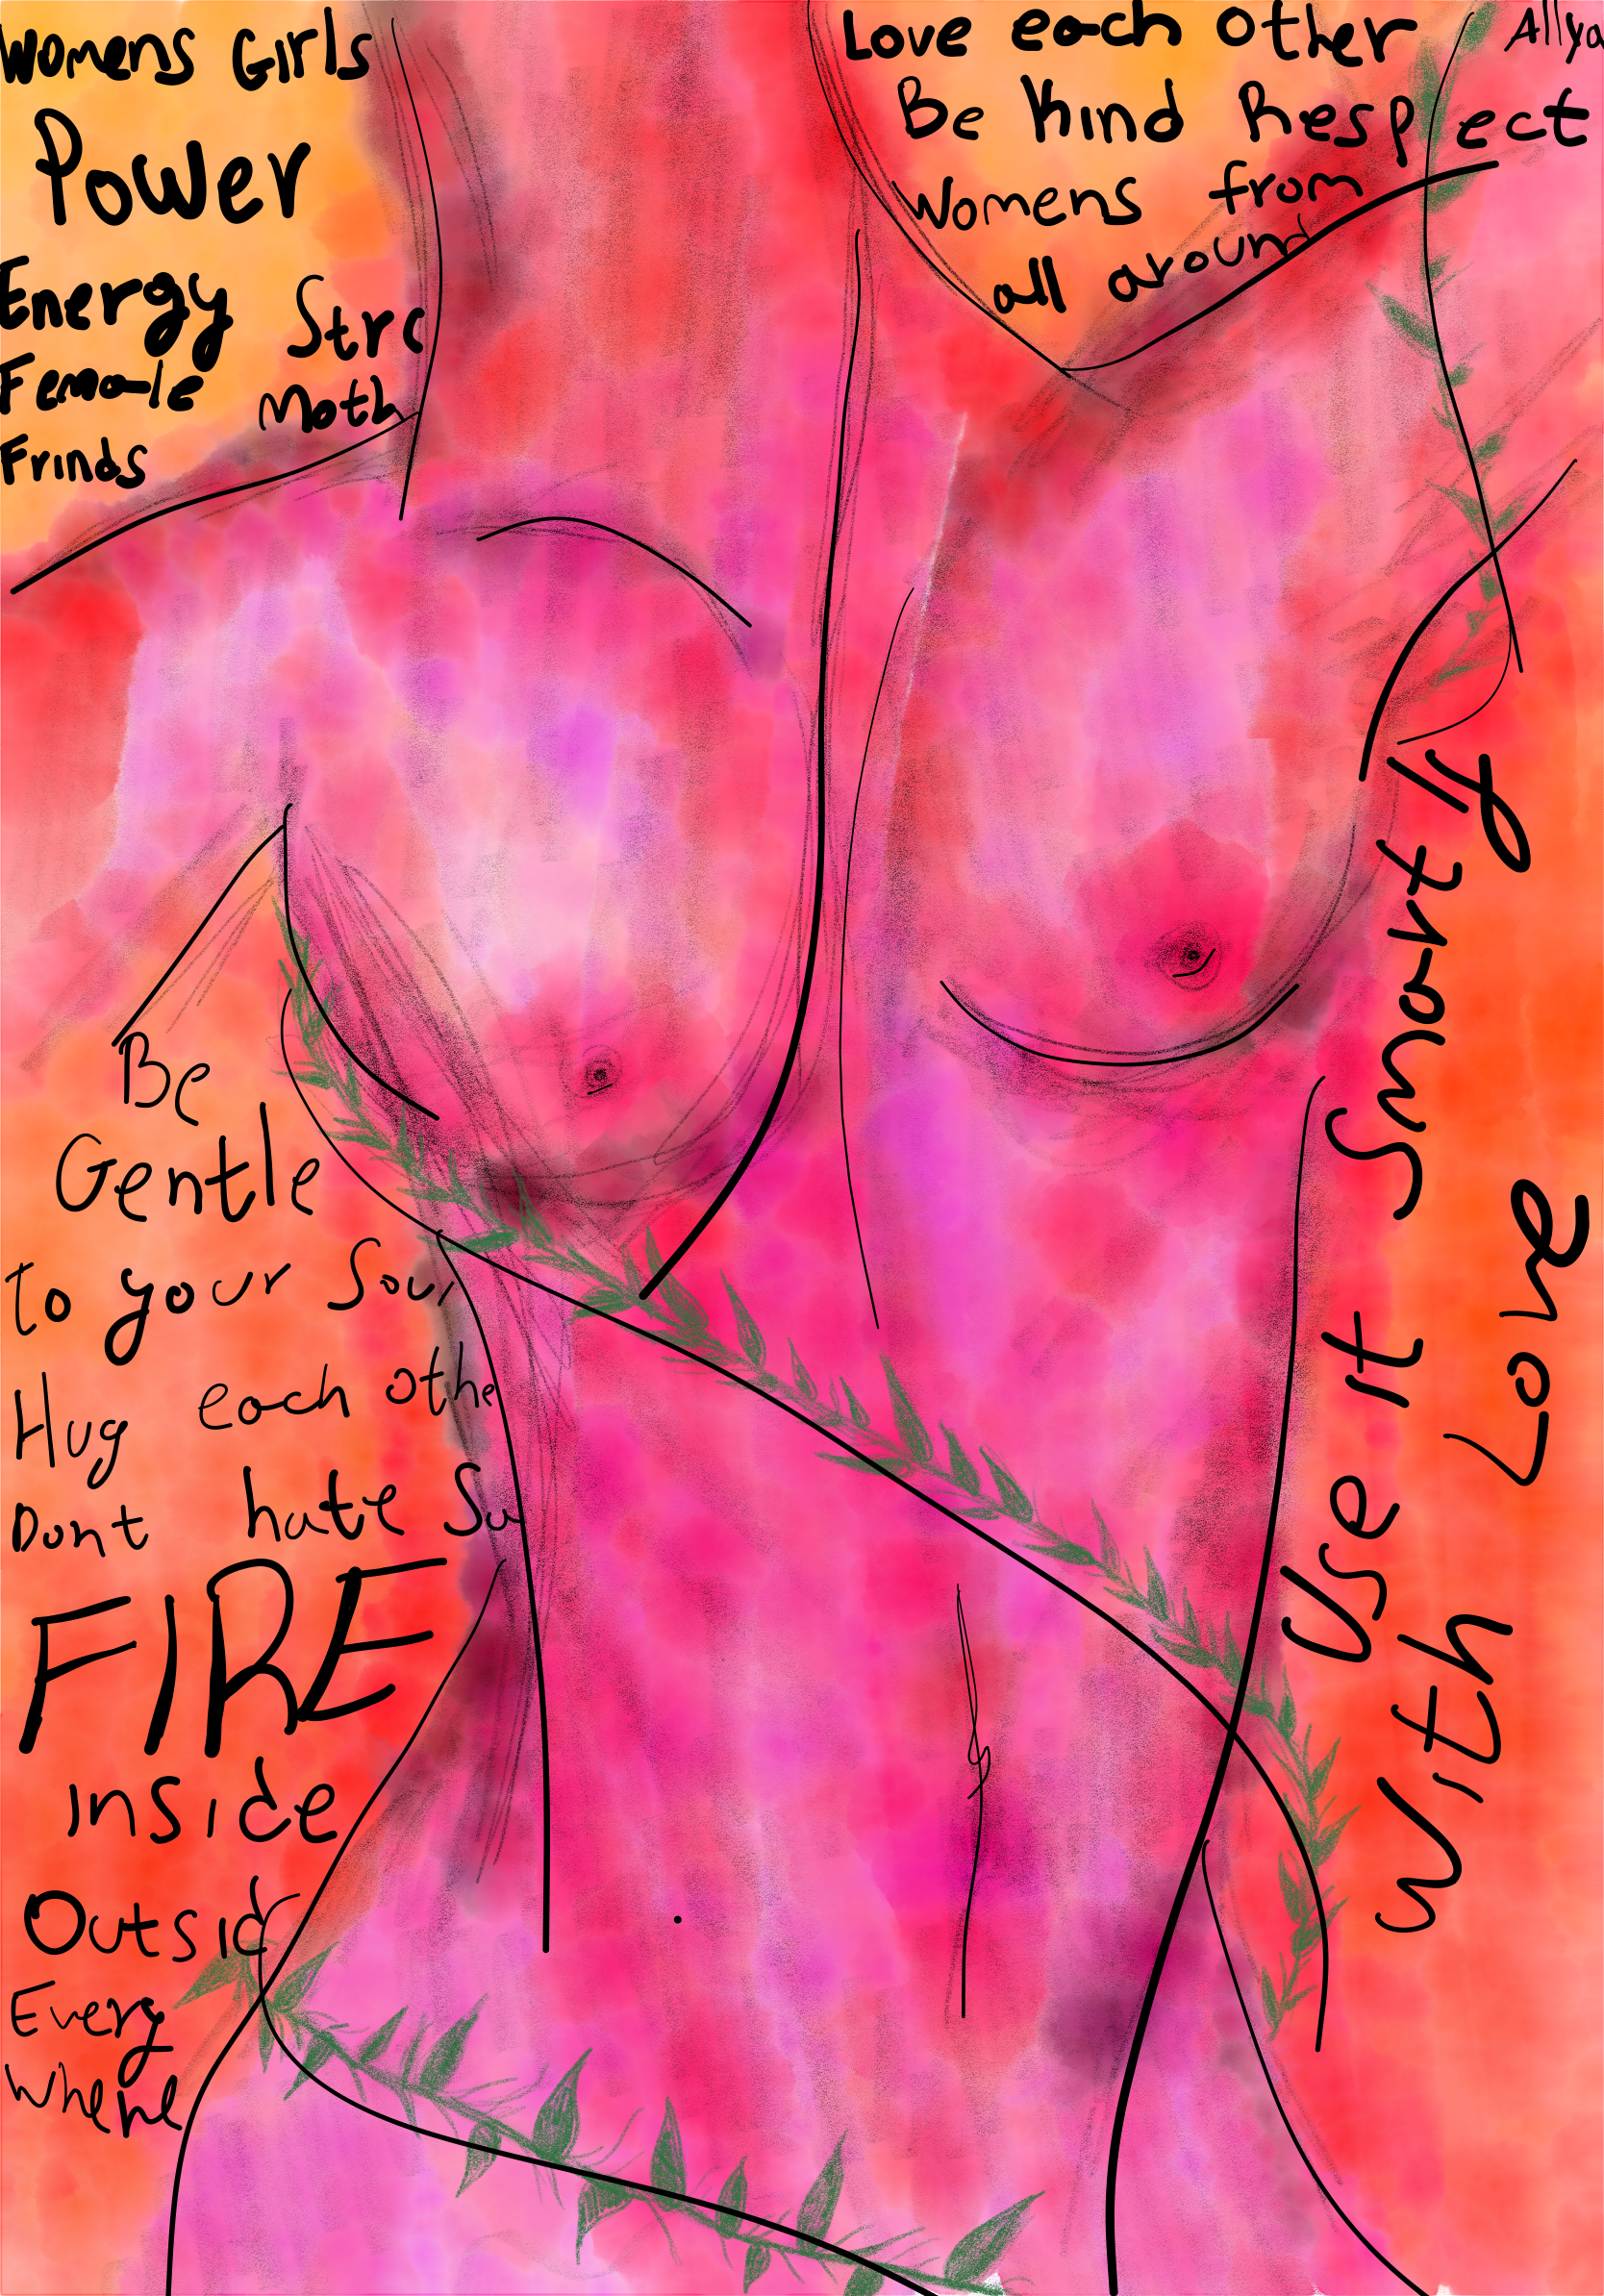 Womens Girls
Power
Energy Strc
Female Moth
Frinds
Love each other
Be Kind Respect
Womens from
all around
Allya
Be
Gentle
to your Soul
Hug each othe
Dont hate Su
FIRE
inside
Outsid
Every
Where
Use It Smartly
With Love